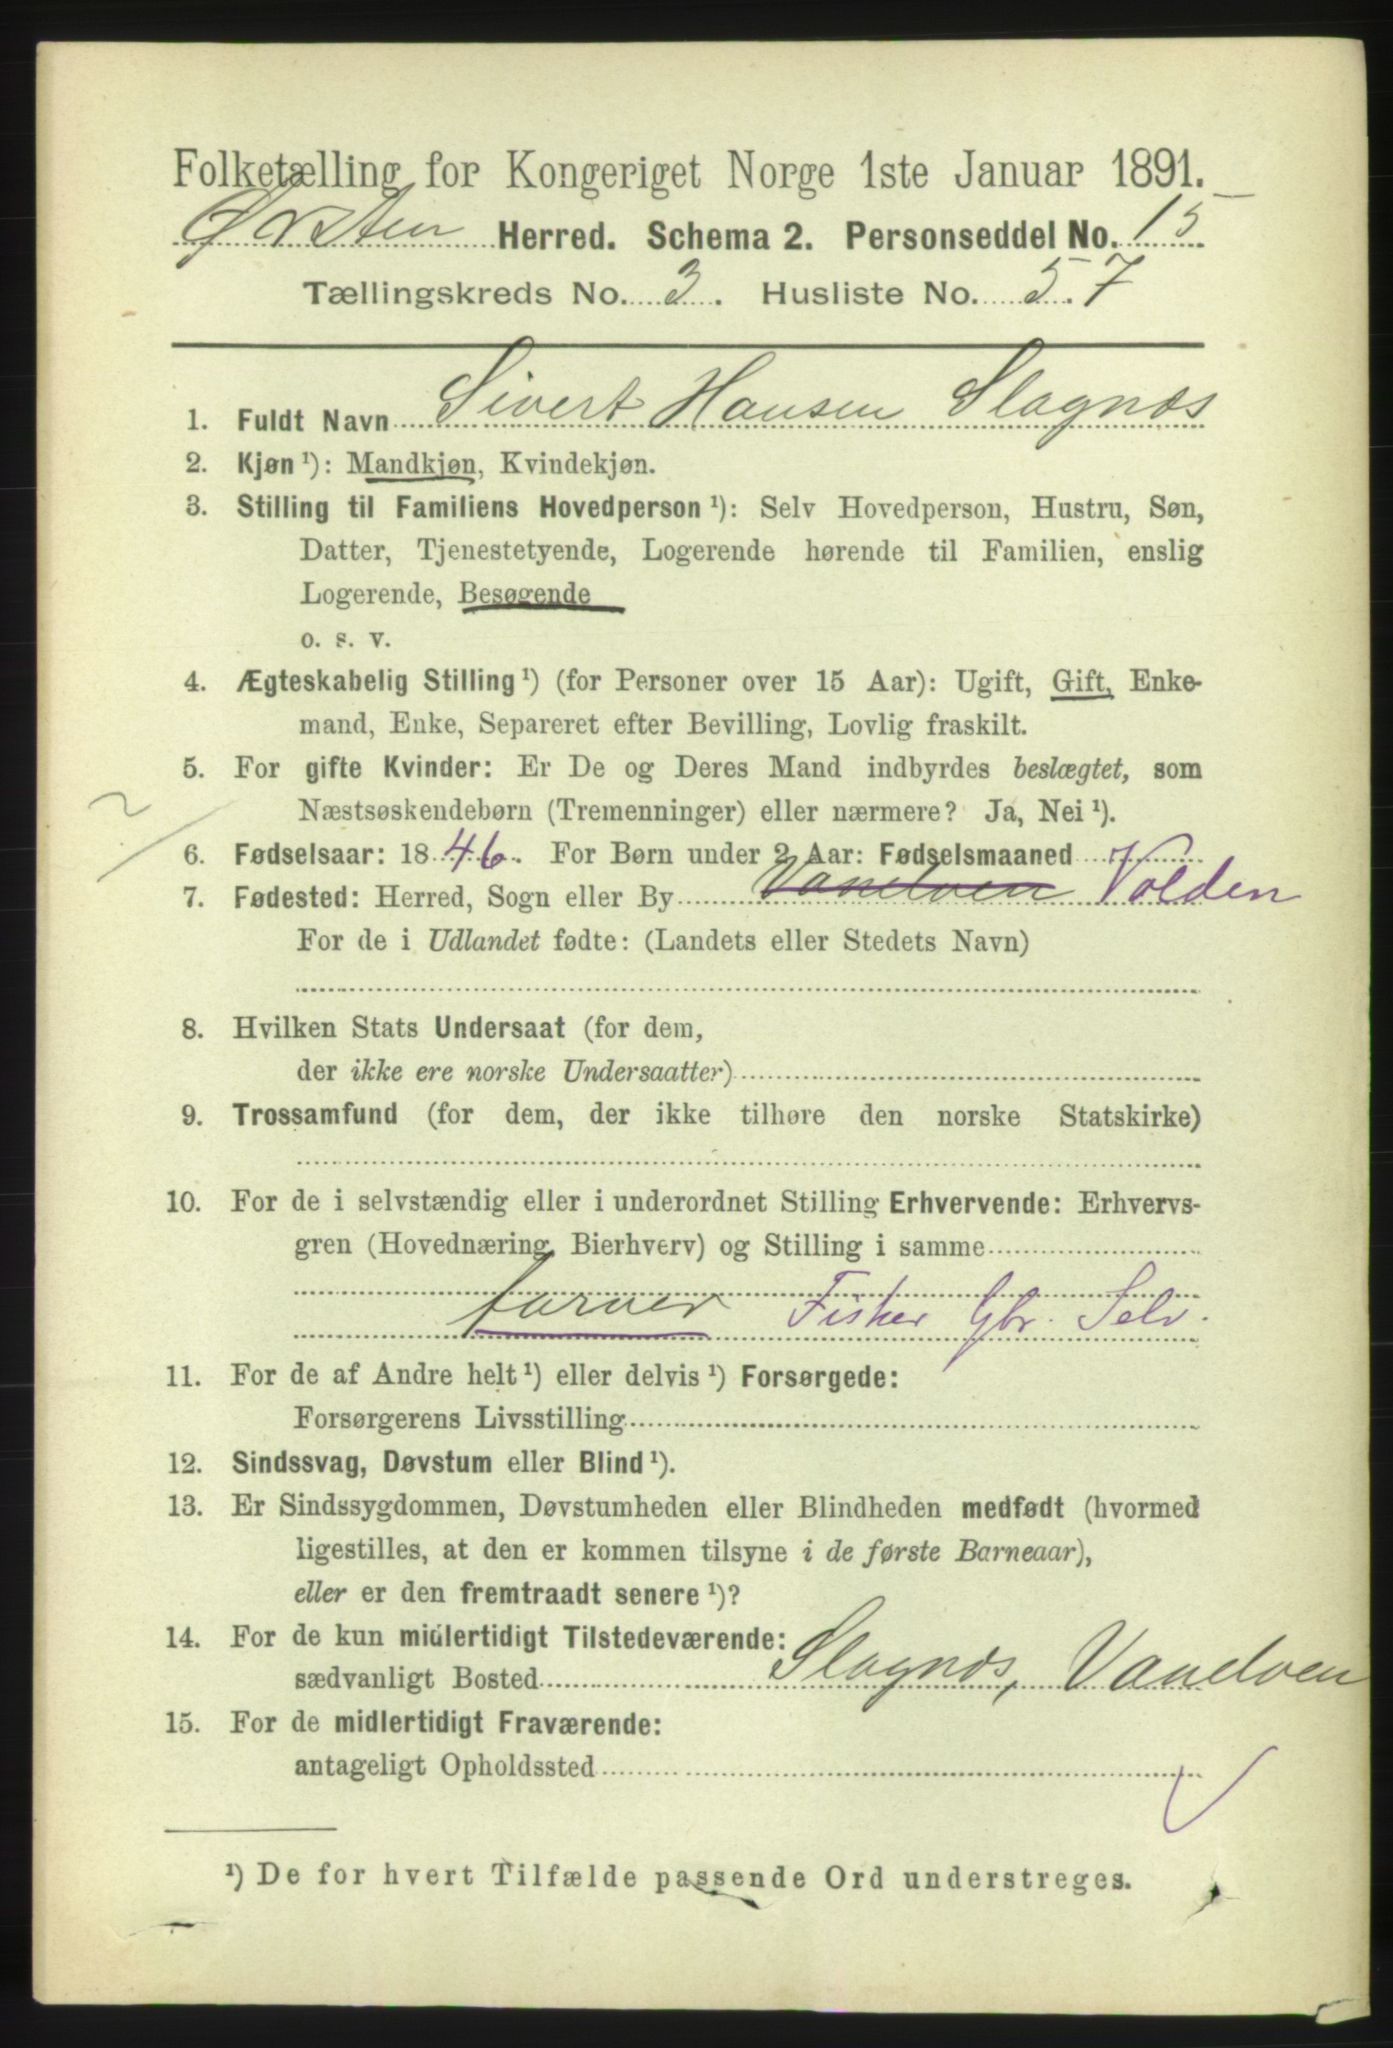 Folketælling for Kongeriget Norge 1ste Januar 1891.
Ørsten Herred. Schema 2. Personseddel No. 15
Tællingskreds No. 3. Husliste No. 57
1. Fuldt Navn Sivert Hansen Slagnæs
2. Kjøn ¹): Mandkjøn, Kvindekjøn.
3. Stilling til Familiens Hovedperson ¹): Selv Hovedperson, Hustru, Søn,
Datter, Tjenestetyende, Logerende hørende til Familien, enslig
Logerende, Besøgende
o. s. v.
4. Ægteskabelig Stilling ¹) (for Personer over 15 Aar): Ugift, Gift, Enke-
mand, Enke, Separeret efter Bevilling, Lovlig fraskilt.
5. For gifte Kvinder: Er De og Deres Mand indbyrdes beslægtet, som
Næstsøskendebørn (Tremenninger) eller nærmere? Ja, Nei ¹).
6. Fødselsaar: 1846. For Børn under 2 Aar: Fødselsmaaned
7. Fødested: Herred, Sogn eller By Vanelven Volden
For de i Udlandet fødte: (Landets eller Stedets Navn)
8. Hvilken Stats Undersaat (for dem,
der ikke ere norske Undersaatter)
9. Trossamfund (for dem, der ikke tilhøre den norske Statskirke)
10. For de i selvstændig eller i underordnet Stilling Erhvervende: Erhvervs-
gren (Hovednæring, Bierhverv) og Stilling i samme
Fisker Gbr. Selv.
11. For de af Andre helt ¹) eller delvis ¹) Forsørgede:
Forsørgerens Livsstilling
12. Sindssvag, Døvstum eller Blind ¹).
13. Er Sindssygdommen, Døvstumheden eller Blindheden medfødt (hvormed
ligestilles, at den er kommen tilsyne i de første Barneaar),
eller er den fremtraadt senere ¹)?
14. For de kun midlertidigt Tilstedeværende:
sædvanligt Bosted Slagnæs, Vanelven
15. For de midlertidigt Fraværende:
antageligt Opholdssted
¹) De for hvert Tilfælde passende Ord understreges.